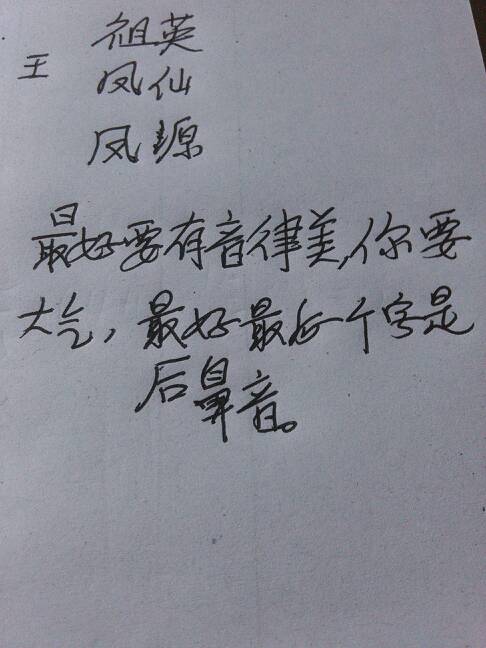 祖英
王
凤仙
凤源
最好要有音律美,你要
大气,最好最后一个字是
后鼻音。